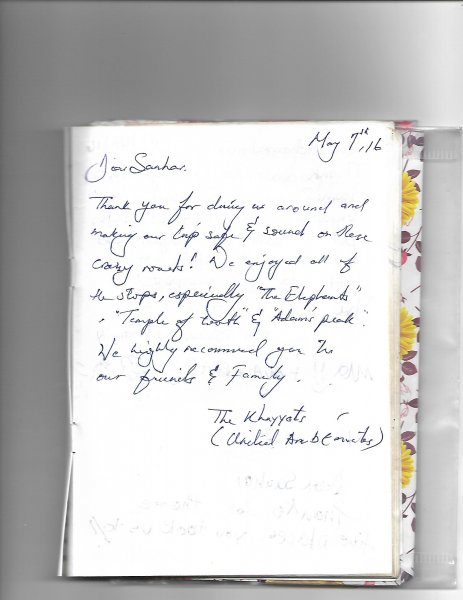 May 7th, 16
Dear Sanhar.
Thank you for driving us around and
making our trip safe & sound on these
crazy roads! We enjoyed all of
the stops, especially "The Elephants"
, "Temple of tooth" & "Adam's peak".
We highly recommend you to
our friends & Family.
The Khayyats
(United Arab Emirates)